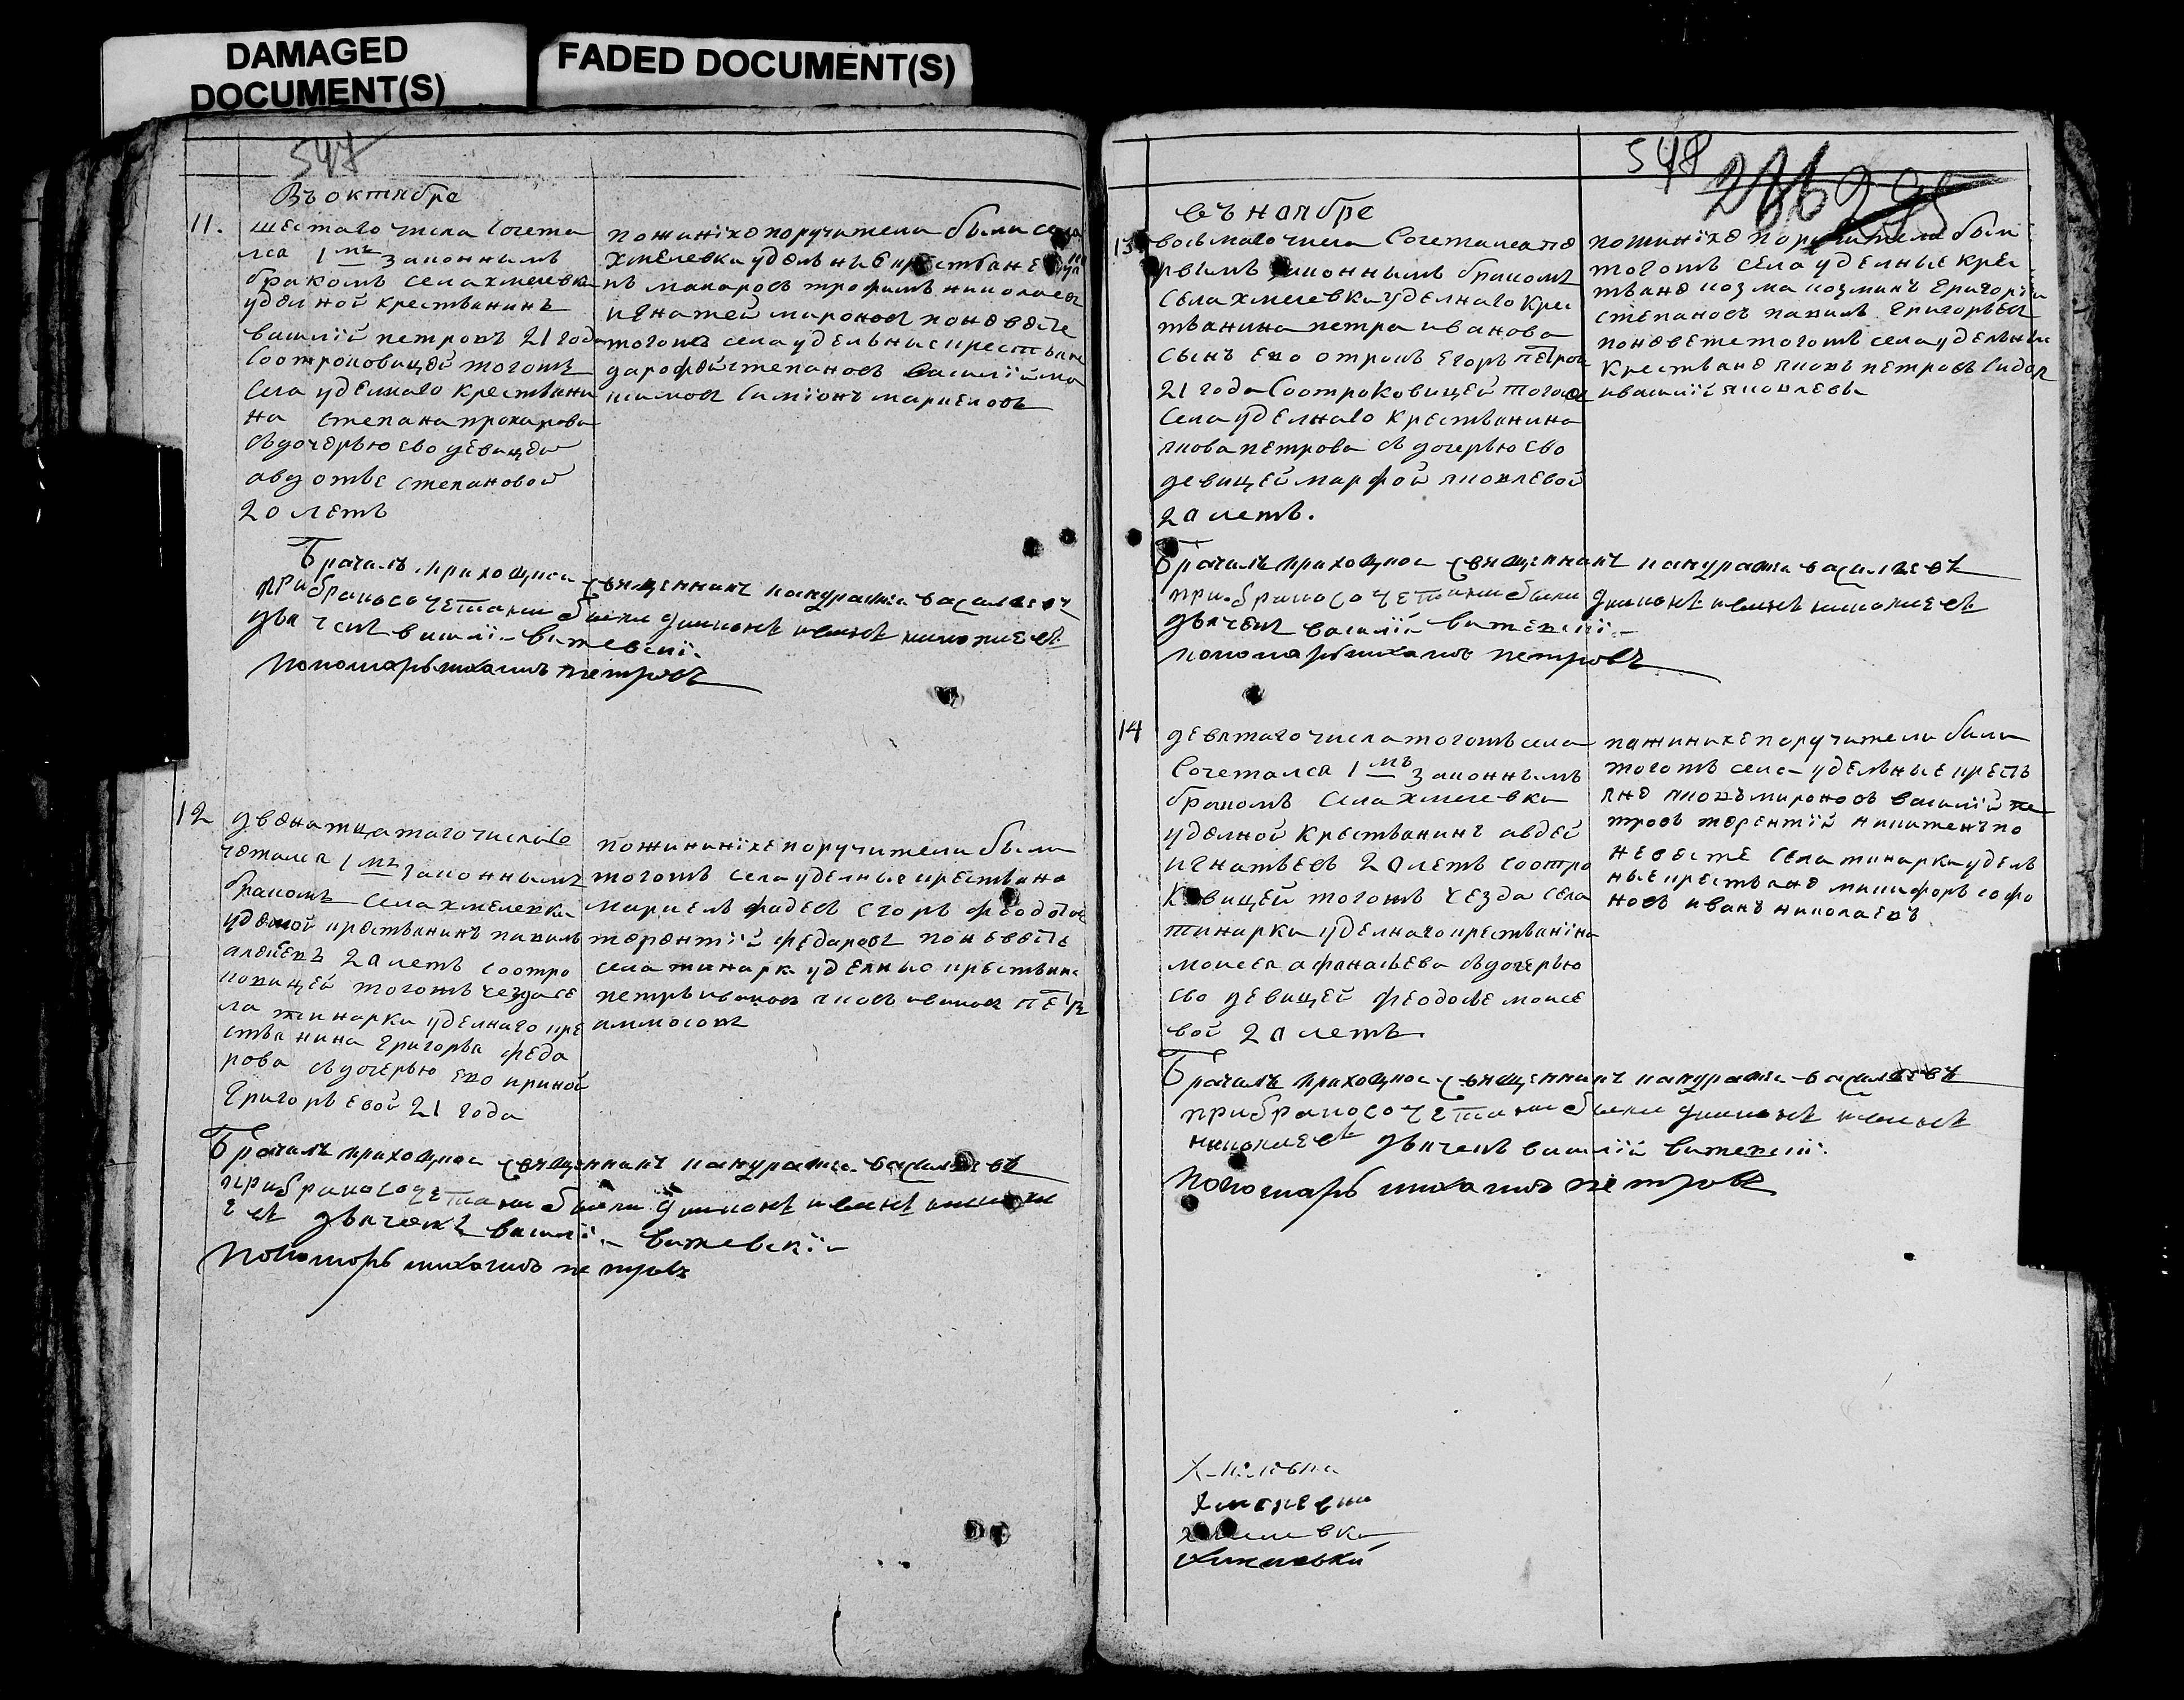 DAMAGED
DOCUMENT(S)
FADED DOCUMENT(S)
547
Въ октябре
11.
шестаго числа сочета
лса 1 мъ законнымъ
бракомъ села хмелевка
уделной крестьанинъ
василїй петровъ 21 года
соотроковицей тогожъ
села уделнаго крестьани
на степана прохарова
съдочерью ево девицей
авдотье степановой
20 летъ
пожинихе поручители были села
хмелевка уделные крестьане
макаровъ трофимъ николаевъ
игнатей мироновъ поневесте
тогожъ села удельные крестьане
дарофей степановъ василїй ма
симовъ симїонъ маркеловъ
Брачалъ приходцкой священникъ кандратей васильевъ
прибракосочетании были диаконъ иванъ николаевъ
дьячекъ василїй витевскїй
пономарь михаилъ петровъ
12
двенатцатаго числа со
четался 1 мъ законнымъ
бракомъ села хмелевка
уделной крестьанинъ павилъ
авдеевъ 20 летъ соотро
ковицей тогожъ уезда се
ла тинарки уделнаго кре
стьанина григорья федо
рова съдочерью ево ириной
григорьевой 21 года
пожинихе поручители были
тогожъ села уделные крестьане
маркелъ фадеевъ егоръ феодотов
терентїй федаровъ поневесте
села тинарк уделные крестьане
петръ ивановъ яковъ ивановъ петръ
аммосовъ
Брачалъ приходцкой священникъ кандратей васильевъ
прибракосочетании были диаконъ иванъ никола
евъ дьячекъ василїй витевскїй
пономарь михаилъ петровъ
548
въ ноябре
13
восьмаго числа сочетался пе
рвымъ законнымъ бракомъ
села хмелевка уделнаго крес
тьанина петра иванова
сынъ ево отрокъ егоръ петровъ
21 года соотроковицей тогожъ
села уделнаго крестьанина
якова петрова съ дочерью ево
девицей марфой яковлевой
20 летъ.
пожинихе поручители были
тогожъ села уделные крес
тьане козма козминъ григорїй
степановъ павилъ григорьевъ
поневесте тогожъ села удельные
крестьане яковъ петровъ сидоръ
ивасилїй яковлевы
Брачалъ приходцкой священникъ кандратей васильевъ
прибракосочетании были диаконъ иванъ николаевъ
дьячекъ василїй витевскїй
пономарь михаилъ петровъ
14
девятаго числа тогожъ села
сочетался 1 мъ законнымъ
бракомъ села хмелевка
уделной крестьанинъ авдей
игнатьевъ 20 летъ соотро
ковицей тогожъ уезда села
тинарки уделнаго крестьанина
моисея афанасьева съдочерью
ево девицей феодосье моисе
вой 20 летъ.
пажинихе поручители были
тогожъ села удельные кресть
яне яковъ мироновъ василїй пе
тровъ терентїй никитенъ по
невесте села тинарка удель
ные крестьяне никифоръ софо
новъ иванъ николаевъ
Брачалъ приходцкой священникъ кандратей васильевъ
прибракосочетании были диаконъ иванъ
николаевъ дьячекъ василїй витевскїй
пономарь михаилъ петровъ
Хмелевка
Хмелевка
хмелевка